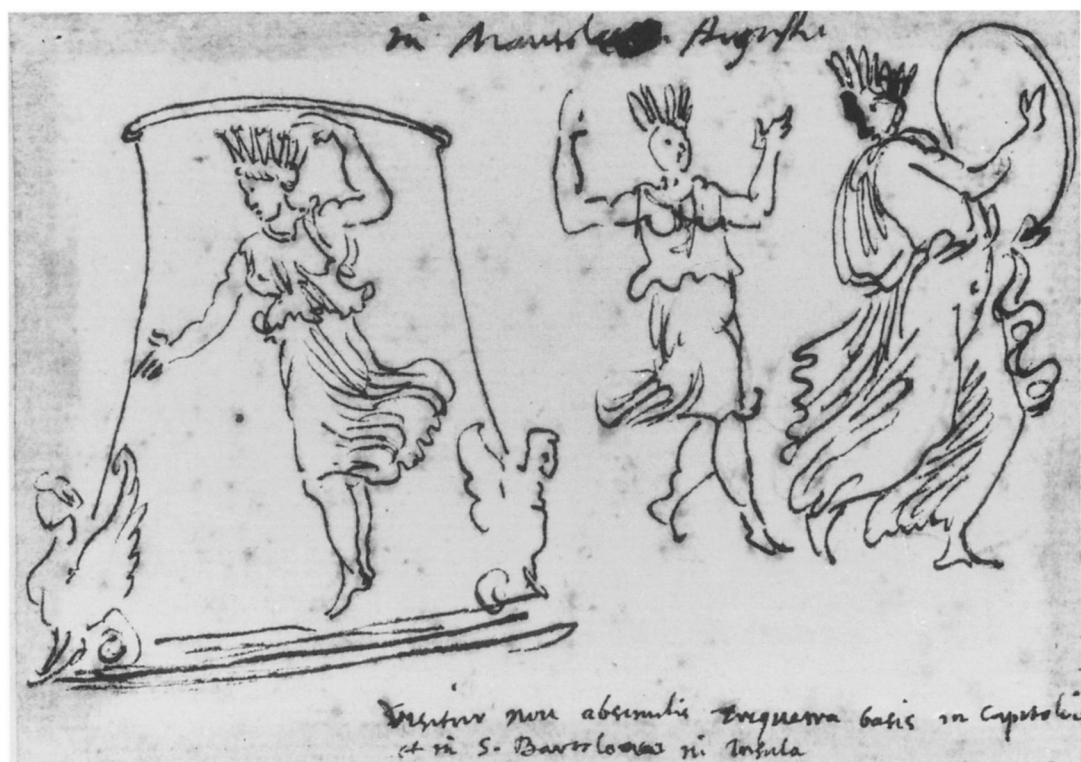 in Mausoleo Augusti
Visitur non absimilis triquetra basis in Capitolio
et in S. Bartolomeo in Insula